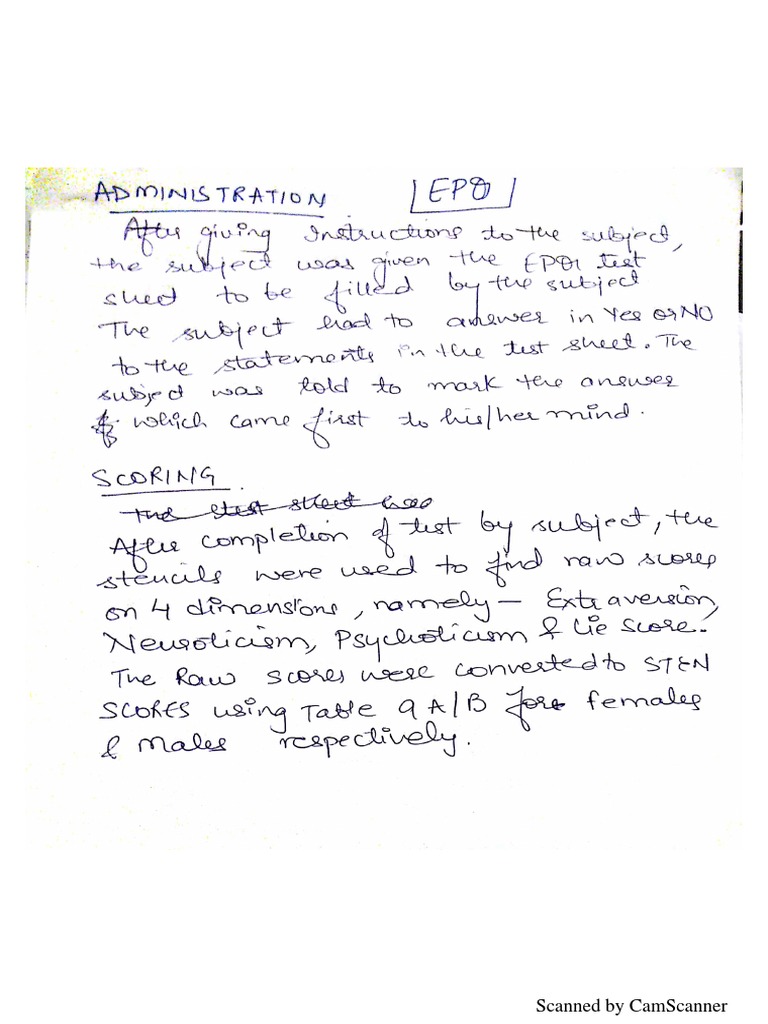 ADMINISTRATION [EPQ]
After giving Instructions to the subject,
the subject was given the EPQ test
sheet to be filled by the subject
The subject had to answer in Yes or NO
to the statements in the test sheet. The
subject was told to mark the answer
which came first to his/her mind.
SCORING
The test sheet was
After completion of test by subject, the
stencils were used to find raw scores
on 4 dimensions, namely – Extraversion,
Neuroticism, Psychoticism & Lie score.
The Raw scores were converted to STEN
SCORES using Table 9 A/B for females
& Males respectively.
Scanned by CamScanner